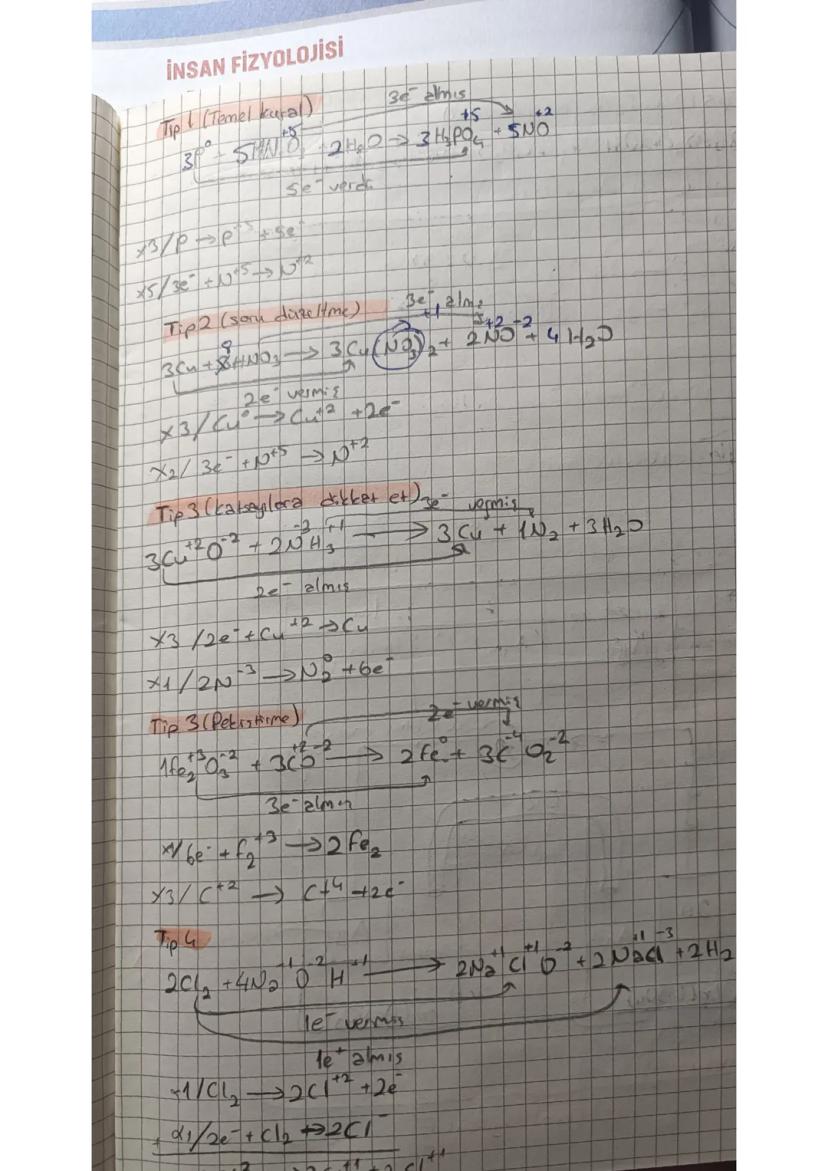 İNSAN FİZYOLOJİSİ
Tip 1 (Temel kural)
3e⁻ almış
3P⁰ + 5HNO₃ + 2H₂O → 3H₃PO₄ + 5NO
5e⁻ verdi
x3/P → P⁺⁵ + 5e⁻
x5/3e⁻ + N⁺⁵ → N⁺²
Tip 2 (soru düzeltme)
3e⁻ almış
3Cu + 8HNO₃ → 3Cu(NO₃)₂ + 2N⁺²O⁻² + 4H₂O
2e⁻ vermiş
x3/Cu⁰ → Cu⁺² + 2e⁻
x2/3e⁻ + N⁺⁵ → N⁺²
Tip 3 (katsayılara dikkat et)
3e⁻ vermiş
3Cu⁺²O⁻² + 2N⁻³H₃⁺¹ → 3Cu + 1N₂ + 3H₂O
2e⁻ almış
x3/2e⁻ + Cu⁺² → Cu
x1/2N⁻³ → N₂⁰ + 6e⁻
Tip 3 (Pekiştirme)
2e⁻ vermiş
1Fe₂⁺³O₃⁻² + 3C⁺²O⁻² → 2Fe⁰ + 3C⁻⁴O₂⁻²
3e⁻ almış
x1/6e⁻ + f₂⁺³ → 2Fe₂
x3/C⁺² → C+4 + 2e⁻
Tip 4
2Cl₂ + 4Na⁺¹O⁻²H⁺¹ → 2Na⁺¹Cl⁺¹O⁻² + 2NaCl + 2H₂
1e⁻ vermiş
1e⁺ almış
x1/Cl₂ → 2Cl⁺² + 2e⁻
+ x1/2e⁻ + Cl₂ → 2Cl⁻